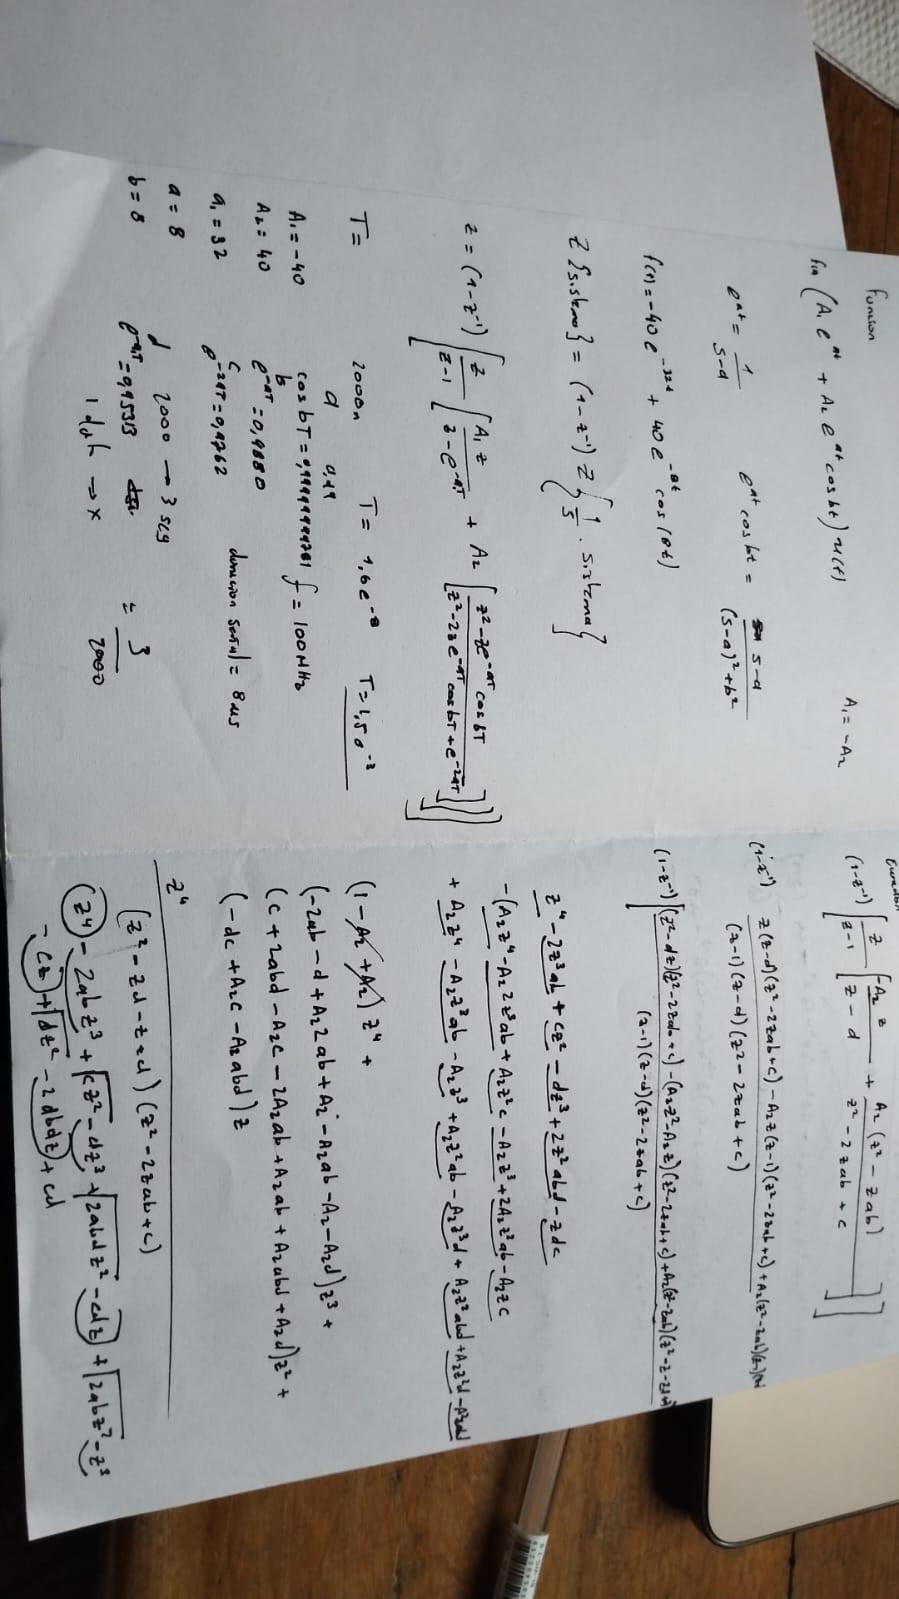 Funcion
fin (A₁ e^{at} + A₂ e^{at} cos bt) u(t) A₁ = -A₂
e^{at} = 1/(s-a) e^{at} cos bt = (s-a)/((s-a)² + b²)
f(t) = -40 e^{-32t} + 40 e^{-8t} cos(8t)
Z {sistema} = (1-z⁻¹) Z {1/s · sistema}
z = (1-z⁻¹) [z/(z-1) [A₁z/(z-e^{-a₁T}) + A₂ [(z² - ze^{-aT} cos bT)/(z² - 2ze^{-aT} cos bT + e^{-2aT})]]]
T = 2000n T = 1,6e⁻⁸ T = 1,5e⁻³
a
A₁ = -40 cos bT = f = 100 MHz
b
A₂ = 40 e^{-aT} = 0,9880
c
a₁ = 32 e^{-2aT} = 0,9762 duracion señal = 8us
a = 8 d 2000 → 3 seg
b = 8 e^{-a₁T} = 0,95313 = 3/2000
1 dato → x
(1-z⁻¹) [z/(z-1) [-A₂z/(z-d) + A₂(z² - zab)/(z² - 2zab + c)]]
(1-z⁻¹) z(z-d)(z² - 2zab + c) - A₂z(z-1)(z² - 2zab + c) + A₂(z² - zab)
(z-1)(z-d)(z² - 2zab + c)
(1-z⁻¹) [(z² - dz)(z² - 2zab + c) - (A₂z² - A₂z)(z² - 2zab + c) + A₂(z² - zab)
(z-1)(z-d)(z² - 2zab + c)
z⁴ - 2z³ab + cz² - dz³ + 2z²abd - zdc
-(A₂z⁴ - A₂2z³ab + A₂z²c - A₂z³ + 2A₂z²ab - A₂zc
+ A₂z⁴ - A₂z³ab - A₂z³ + A₂z²ab - A₂z³d + A₂z²abd + A₂z²d
(1 - A₂ + A₂) z⁴ +
(-2ab - d + A₂2ab + A₂ - A₂ab - A₂ - A₂d) z³ +
(c + 2abd - A₂c - 2A₂ab + A₂ab + A₂abd + A₂d) z² +
(-dc + A₂c - A₂abd) z
z⁴
(z² - zd - z + d)(z² - 2zab + c)
z⁴ - 2abz³ + cz² - dz³ + 2abdz² - cdz + 2abz² - z³
- cz + dz² - 2abdz + cd